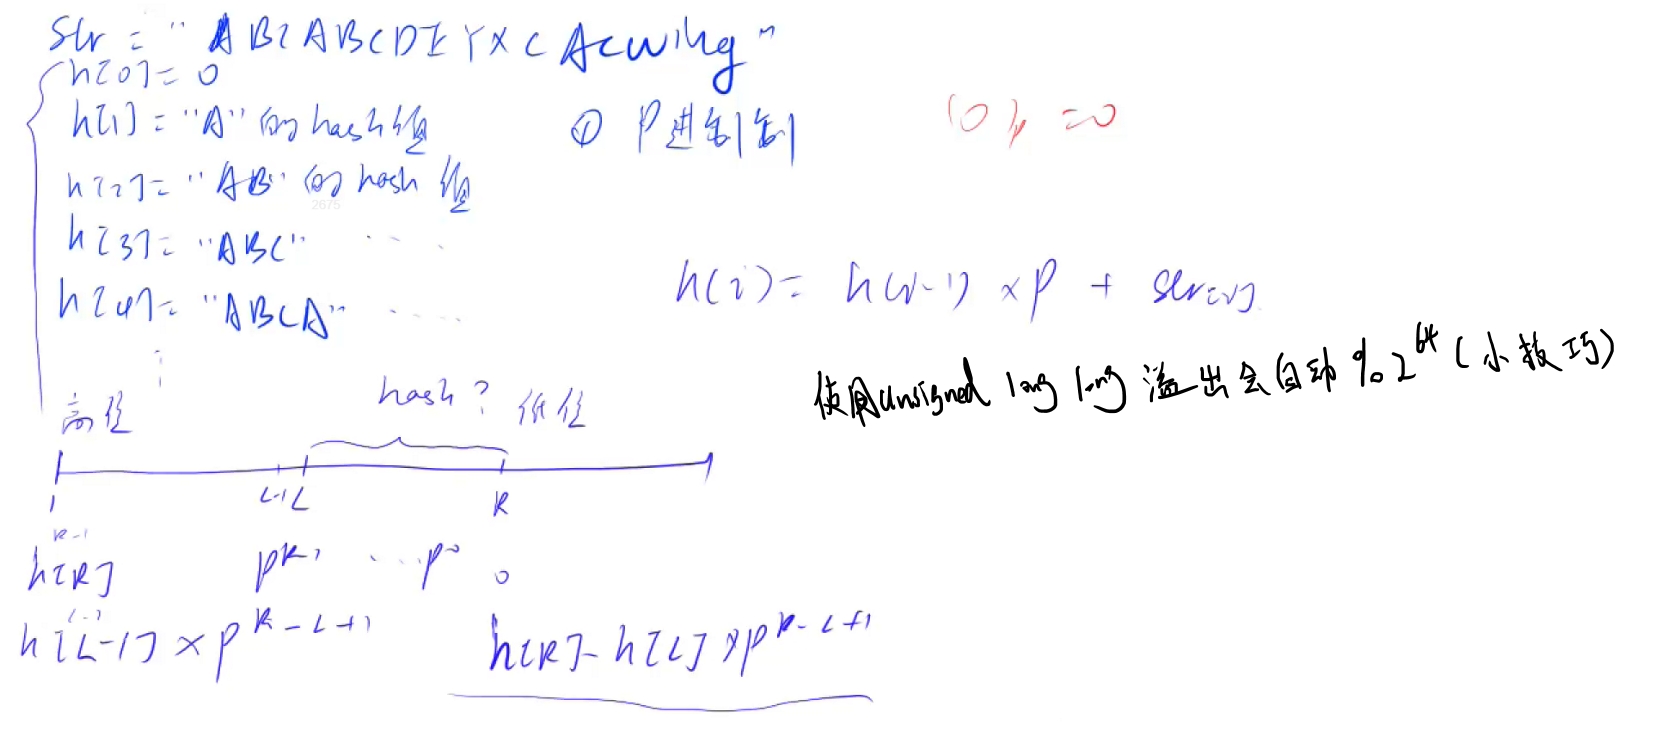 str = "ABCABCDEYXCAcwing"
h[0] = 0
h[1] = "A" 的 hash 值
① P进制制
(0)p = 0
h[2] = "AB" 的 hash 值
2675
h[3] = "ABC" ......
h[4] = "ABCA" ......
h(i) = h(i-1) × P + str[i]
使用unsigned long long 溢出会自动 % 2^64 (小技巧)
hash?
高位 低位
1 L-1 L R
R-1 0
h[R] p^R-1 ... p^0
L-1
h[L-1] × p^R-L+1
h[R] - h[L] × p^R-L+1